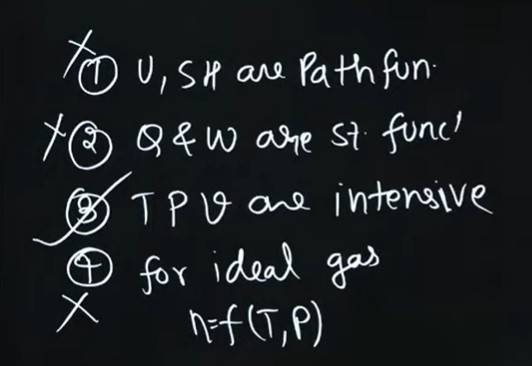 ① U, SH are Path fun.
② Q & W are st. func'
③ T P V are intensive
④ for ideal gas
h=f(T,P)